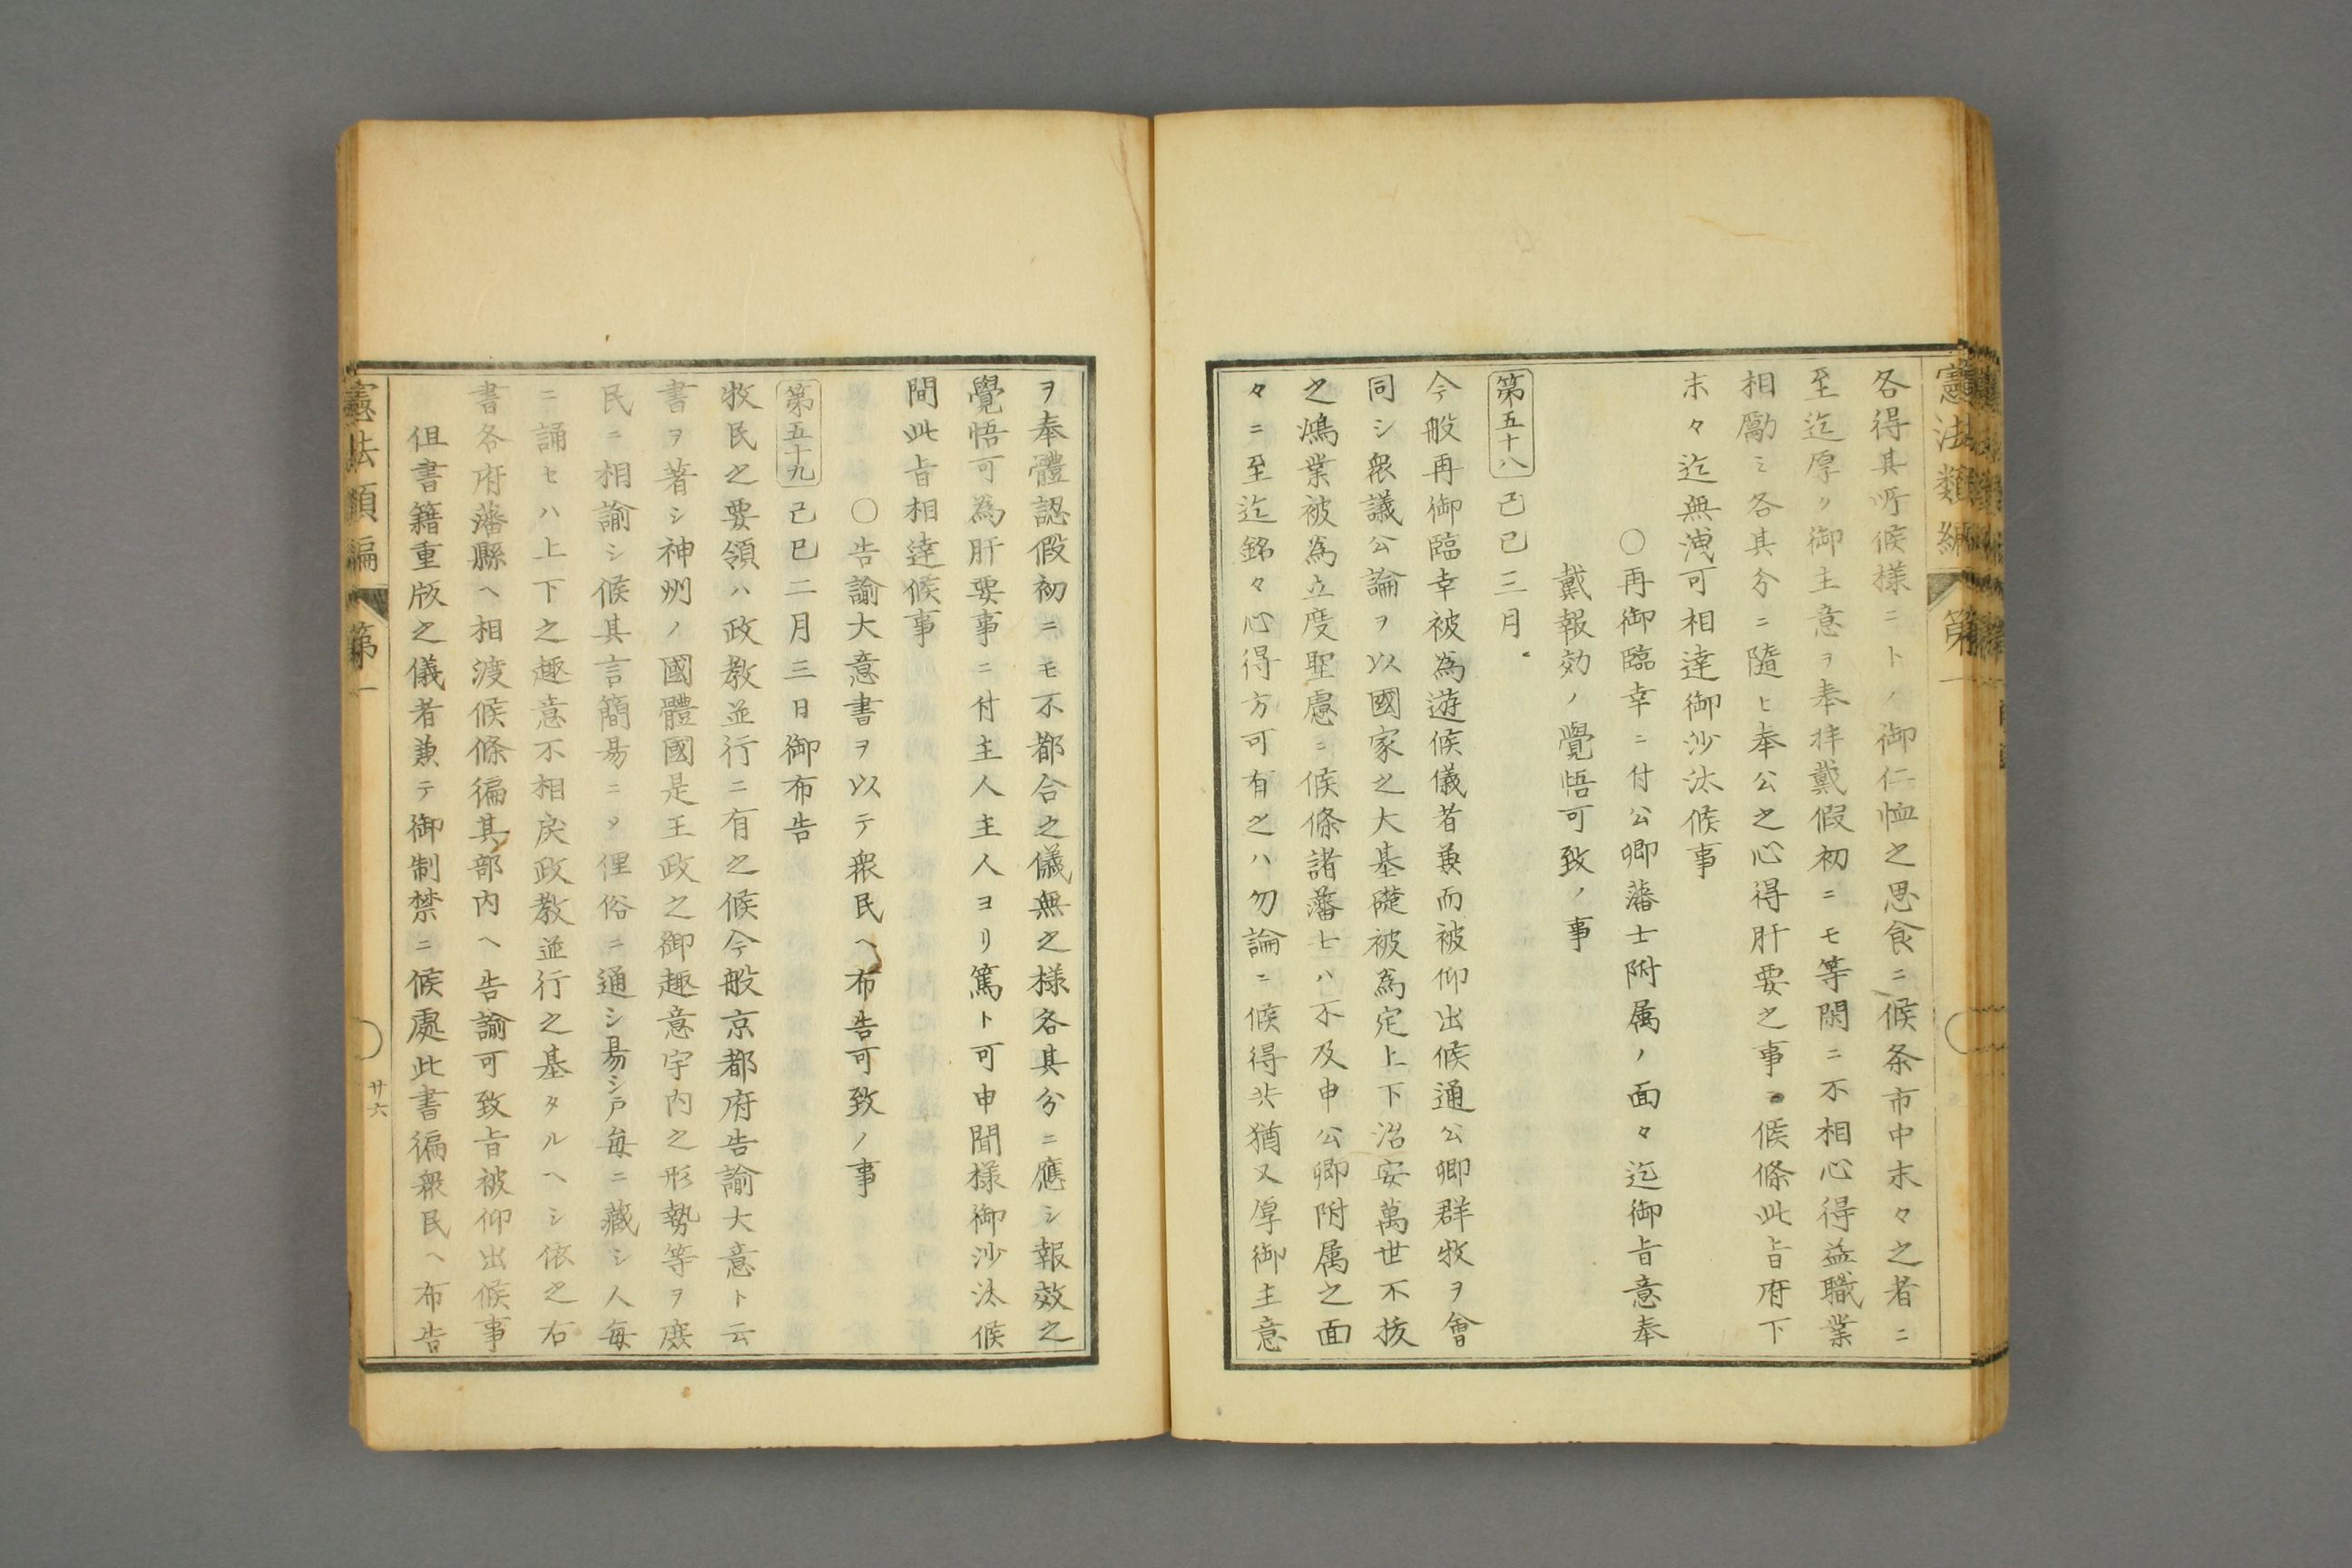 憲法類編 第一
各得其所候様ニトノ御仁恤之思食ニ候条市中末々之者ニ
至迄厚ク御主意ヲ奉拝戴假初ニモ等閑ニ不相心得益職業
相勵ミ各其分ニ隨ヒ奉公之心得肝要之事ニ候條此旨府下
末々迄無洩可相達御沙汰候事
〇再御臨幸ニ付公卿藩士附属ノ面々迄御旨意奉
戴報効ノ覺悟可致ノ事
第五十八 己巳三月
今般再御臨幸被為遊候儀者兼而被仰出候通公卿群牧ヲ會
同シ衆議公論ヲ以國家之大基礎被為定上下治安萬世不抜
之鴻業被為立度聖慮ニ候條諸藩士ハ不及申公卿附属之面
々ニ至迄銘々心得方可有之ハ勿論ニ候得共猶又厚御主意
ヲ奉體認假初ニモ不都合之儀無之様各其分ニ應シ報效之
覺悟可為肝要事ニ付主人主人ヨリ篤ト可申聞様御沙汰候
間此旨相達候事
〇告諭大意書ヲ以テ衆民ヘ布告可致ノ事
第五十九 己巳二月三日御布告
牧民之要領ハ政教並行ニ有之候今般京都府告諭大意ト云
書ヲ著シ神州ノ國體國是王政之御趣意宇内之形勢等ヲ庶
民ニ相諭シ候其言簡易ニノ俚俗ニ通シ易シ戸毎ニ藏シ人毎
ニ誦セハ上下之趣意不相戻政教並行之基タルヘシ依之右
書各府藩縣ヘ相渡候條徧其部内ヘ告諭可致旨被仰出候事
但書籍重版之儀者兼テ御制禁ニ候處此書徧衆民ヘ布告
憲法類編 第一
廿六